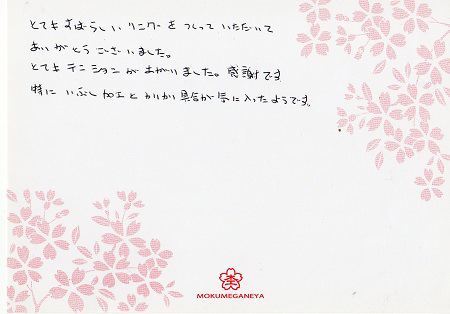 とてもすばらしいリングをつくっていただいて
ありがとうございました。
とてもテンションがあがりました。感謝です
特にいぶし加工とかりかり具合が気に入ったようです。
MOKUMEGANEYA